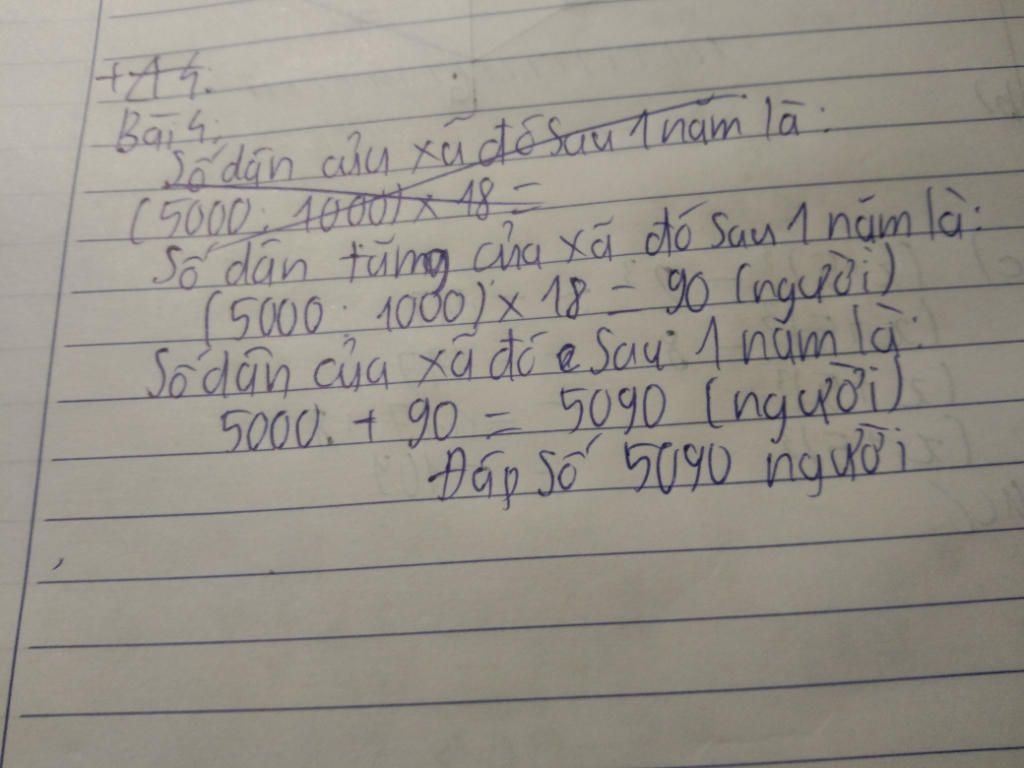 +A4.
Bài 4:
Số dân của xã đó sau 1 năm là:
(5000 : 1000) x 18 =
Số dân tăng của xã đó sau 1 năm là:
(5000 : 1000) x 18 = 90 (người)
Số dân của xã đó sau 1 năm là:
5000 + 90 = 5090 (người)
Đáp số 5090 người